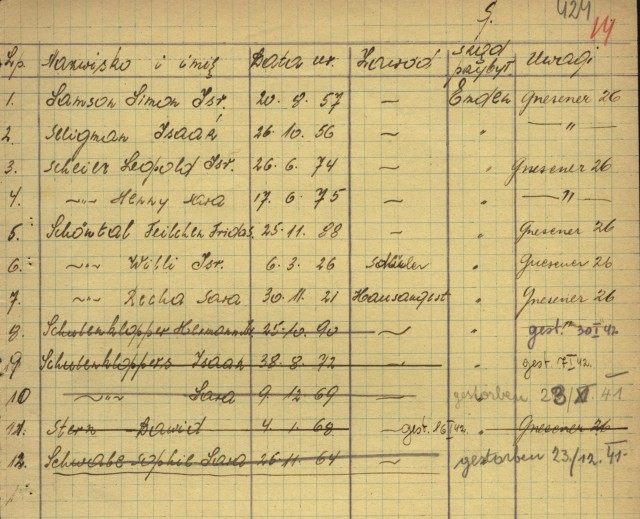 G. 424
14
L.p. Nazwisko i imię Data ur. Zawód skąd przybył. Uwagi
1. Samson Simon Isr. 20. 8. 57 — Emden Gnesener 26
2. Seligman Isaak 26. 10. 56 — " — " —
3. Scheier Leopold Isr. 26. 6. 74 — " Gnesener 26
4. —"— Henny Sara 17. 6. 75 — " — " —
5. Schöntal Feilchen Fridas. 25. 11. 88 — " Gnesener 26
6. —"— Willi Isr. 6. 3. 26 Schüler " Gnesener 26
7. —"— Recha Sara 30. 11. 21 Hausangest " Gnesener 26
8. Schulenklopper Hermann 25. 10. 90 — " gest. 30 I 42.
9 Schulenkloppers Isaak 38. 8. 72 — " gest. 7 I 42.
10 —"— Sara 9. 12. 69 — gestorben 41
11. Stern Dawid 4. 1. 68 — gest. 26 I 42. " Gnesener 26
12. Schwabe Sophie Sara 26. 11. 64 — gestorben 23./12. 41.